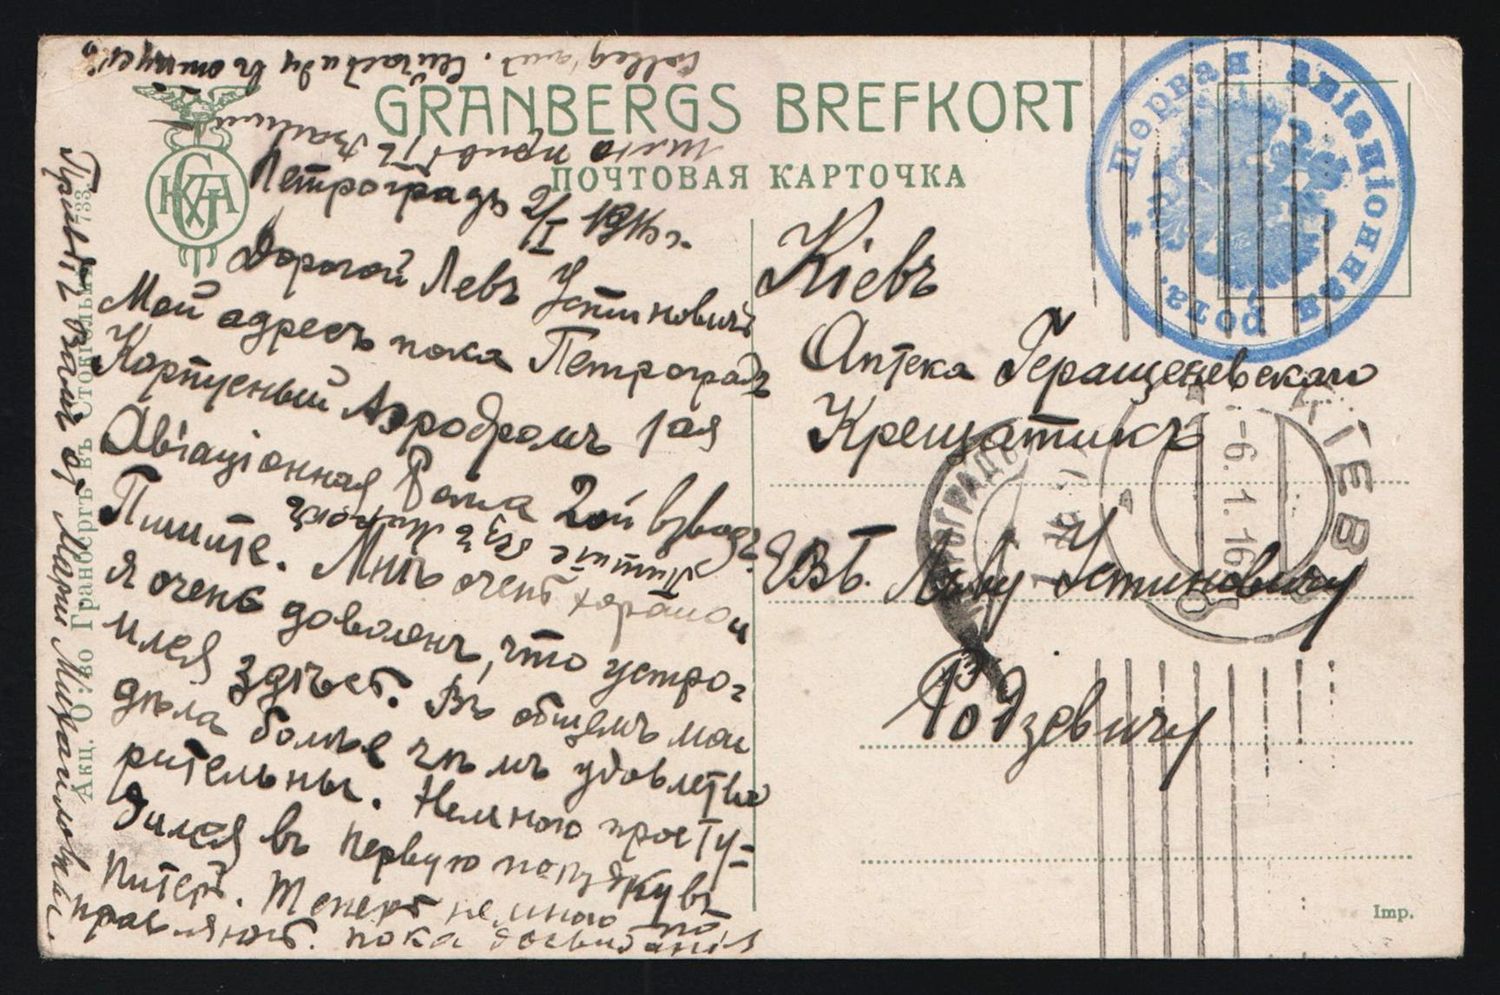 GRANBERGS BREFKORT
ПОЧТОВАЯ КАРТОЧКА
Петроградъ 2/I 1916 г.
Дорогой Левъ Устиновичъ
Мой адресъ пока Петроградъ
Корпусный Аэродромъ 1ая
Авіаціонная Рота 2ой взводъ.
Пишите безъ марокъ
Пишите. Мнѣ очень хорошо и
я очень доволенъ, что устро-
ился здѣсь. Въ общемъ мои
дѣла болѣе чѣмъ удовлетво
рительны. Немного просту=
дился въ первую поѣздку въ
Питеръ. Теперь немного по
правляюсь. пока досвиданія
Привѣтъ отъ Маріи Михайловны.
Акц. О-во Гранбергъ въ Стокгольмѣ
733
Кіевъ
Аптека Геращеневскаго
Крещатикъ
ЕВБ. Льву Устиновичу
Родзевичу
Первая авіаціонная рота.
КІЕВЪ
-6.1.16
Imp.